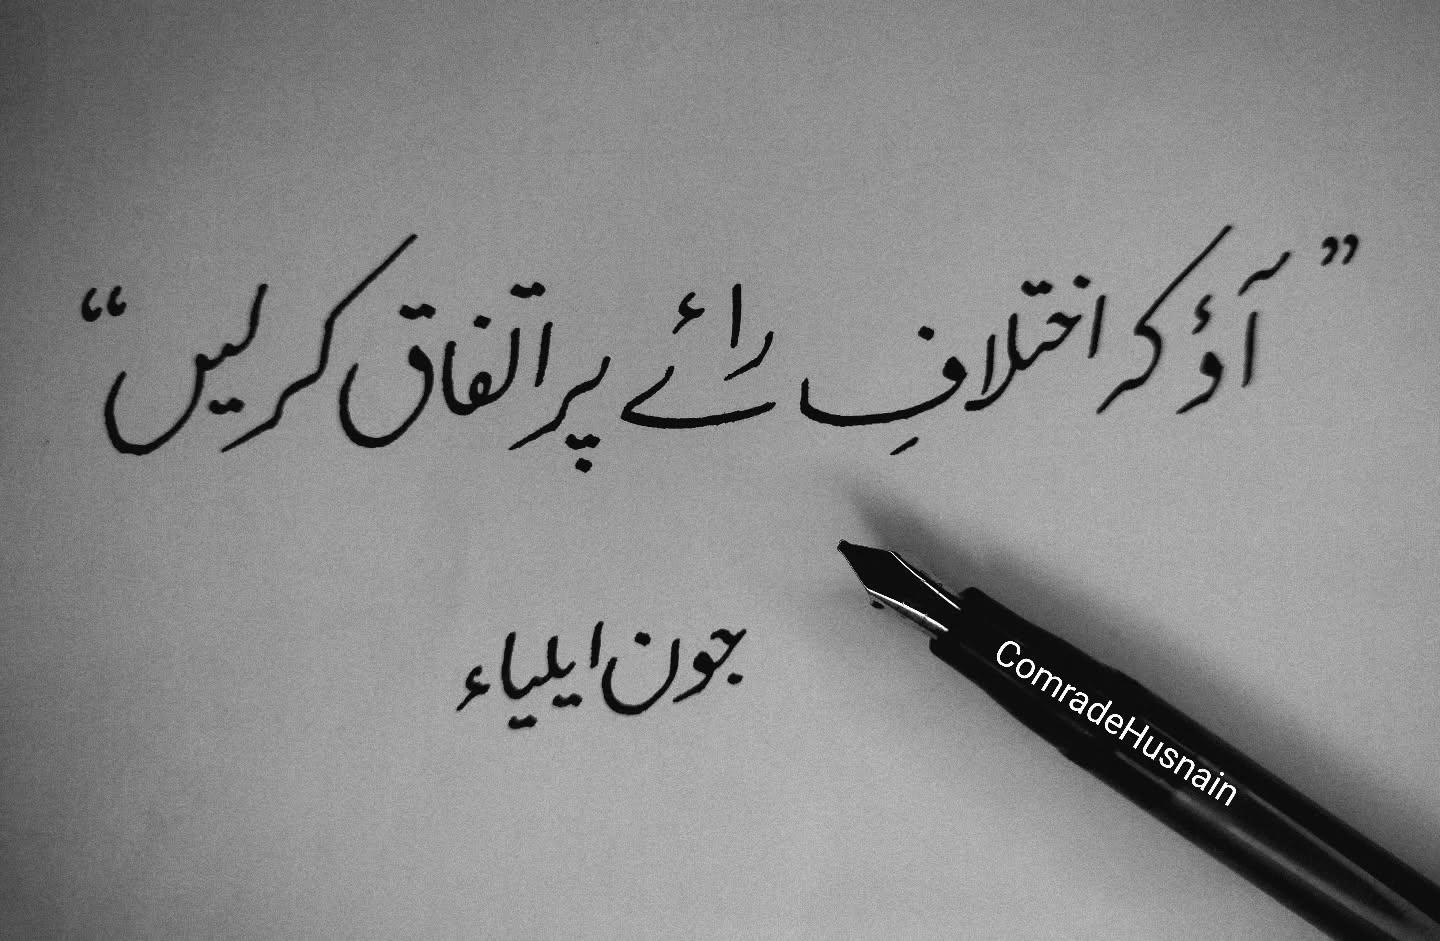 ”آؤ کہ اختلافِ رائے پر اتفاق کر لیں“
جون ایلیاء
ComradeHusnain